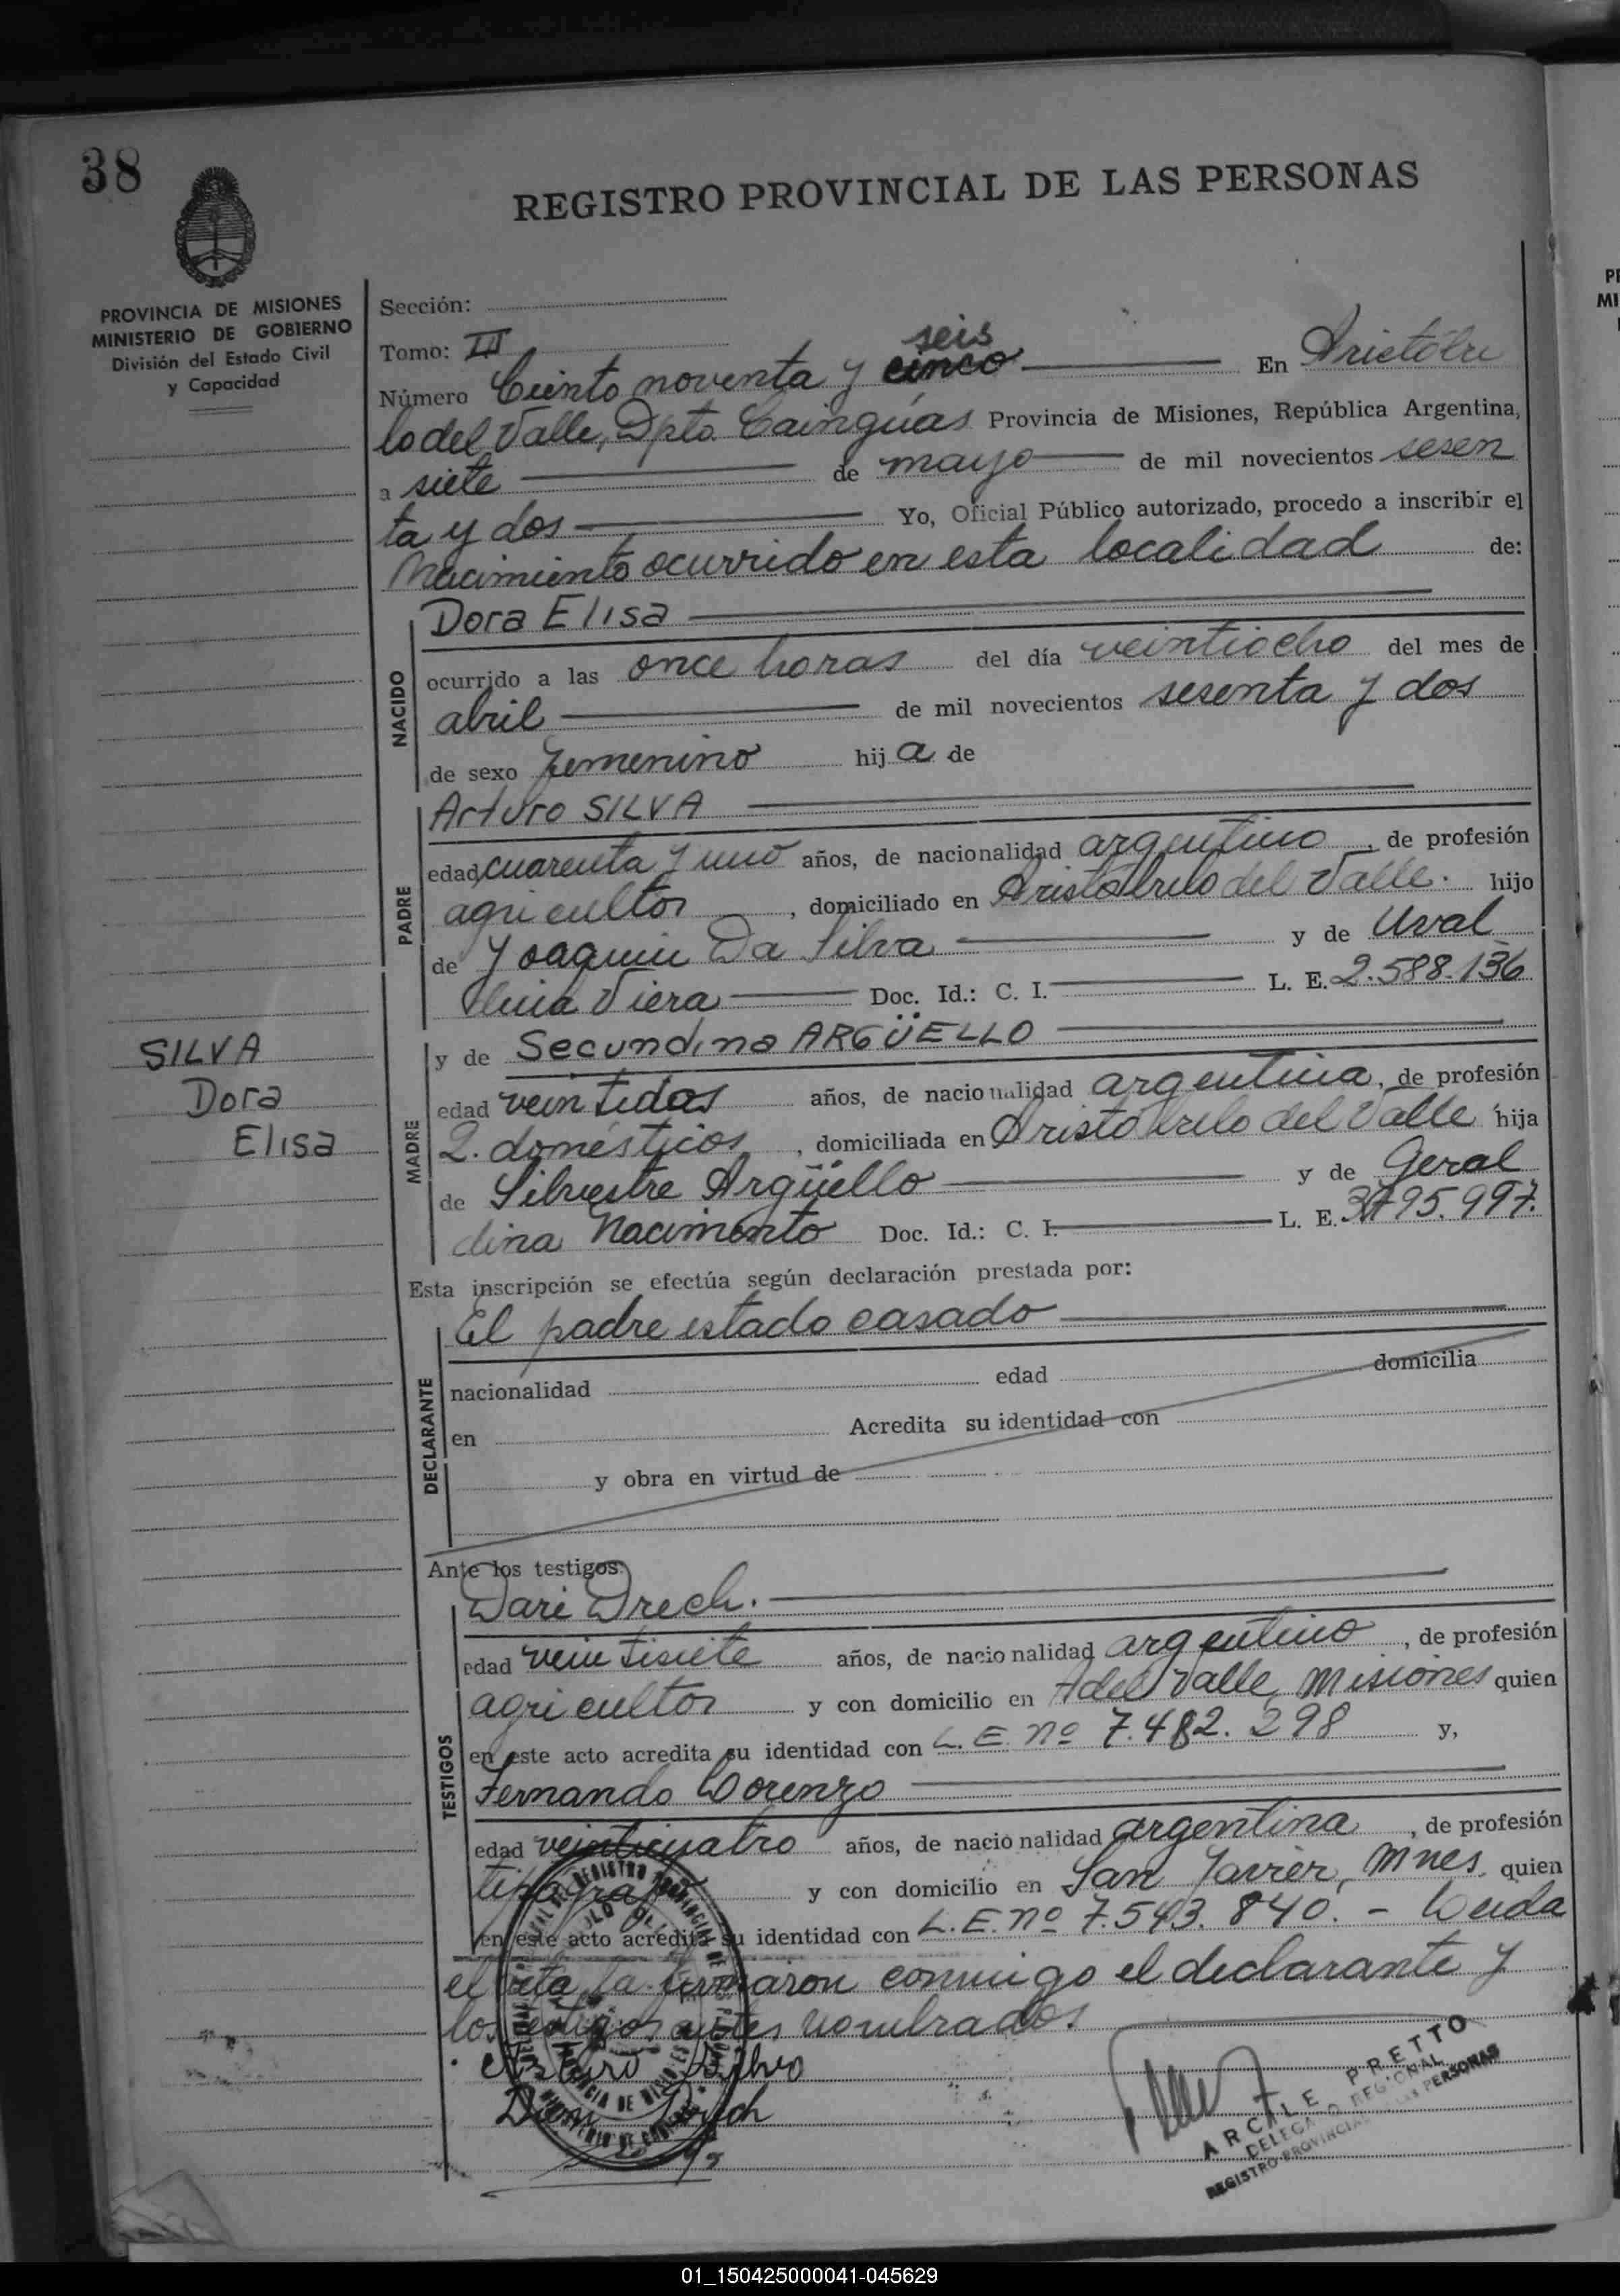 38
REGISTRO PROVINCIAL DE LAS PERSONAS
PROVINCIA DE MISIONES
MINISTERIO DE GOBIERNO
División del Estado Civil
y Capacidad
Sección:
Tomo: III
seis
Número Ciento noventa y cinco En Aristóbu
lo del Valle, Dpto Cainguas Provincia de Misiones, República Argentina,
a siete de mayo de mil novecientos sesen
ta y dos Yo, Oficial Público autorizado, procedo a inscribir el
Nacimiento ocurrido en esta localidad de:
NACIDO
Dora Elisa
ocurrido a las once horas del día veintiocho del mes de
abril de mil novecientos sesenta y dos
de sexo femenino hija de
PADRE
Arturo SILVA
edad cuarenta y uno años, de nacionalidad argentino, de profesión
agricultor, domiciliado en Aristóbulo del Valle. hijo
de Joaquin Da Silva y de Uval
Viera Doc. Id.: C. I. L. E. 2.588.136
SILVA
Dora
Elisa
MADRE
y de Secundina ARGÜELLO
edad veintidos años, de nacionalidad argentina, de profesión
Q. domésticos, domiciliada en Aristóbulo del Valle hija
de Silvestre Argüello y de Geral
dina Nacimento Doc. Id.: C. I. L. E. 95.997.
Esta inscripción se efectúa según declaración prestada por:
DECLARANTE
El padre estado casado
nacionalidad edad domicilia
en Acredita su identidad con
y obra en virtud de
Ante los testigos:
TESTIGOS
Dari Drech.
edad veintisiete años, de nacionalidad argentino, de profesión
agricultor y con domicilio en A del Valle, Misiones quien
en este acto acredita su identidad con L. E. nº 7.482.298 y,
Fernando Lorenzo
edad veinticuatro años, de nacionalidad argentina, de profesión
tipógrafo y con domicilio en San Javier, Mnes. quien
en este acto acredita su identidad con L. E. nº 7.543.840. - Leída
el acta la firmaron conmigo el declarante y
los testigos antes nombrados.
Arturo Silva
ARCILE PRETTO
DELEGADO REGIONAL
REGISTRO PROVINCIAL DE LAS PERSONAS
01_150425000041-045629